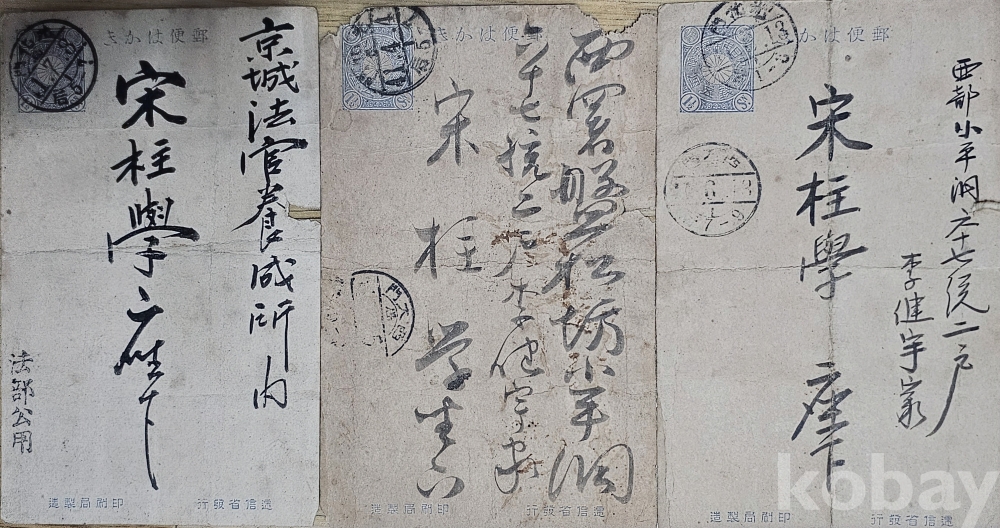 きかは便郵
京城法官養成所内
宋柱學座下
法部公用
造製局刷印 行發省信遞
きかは便郵
西署盤松坊小平洞
六十七統二戶李健宇家
宋柱学生下
造製局刷印 行發省信遞
かは便郵
西部小平洞六十七統二戶
李健宇家
宋柱學座下
造製局刷印 行發省信遞
kobay